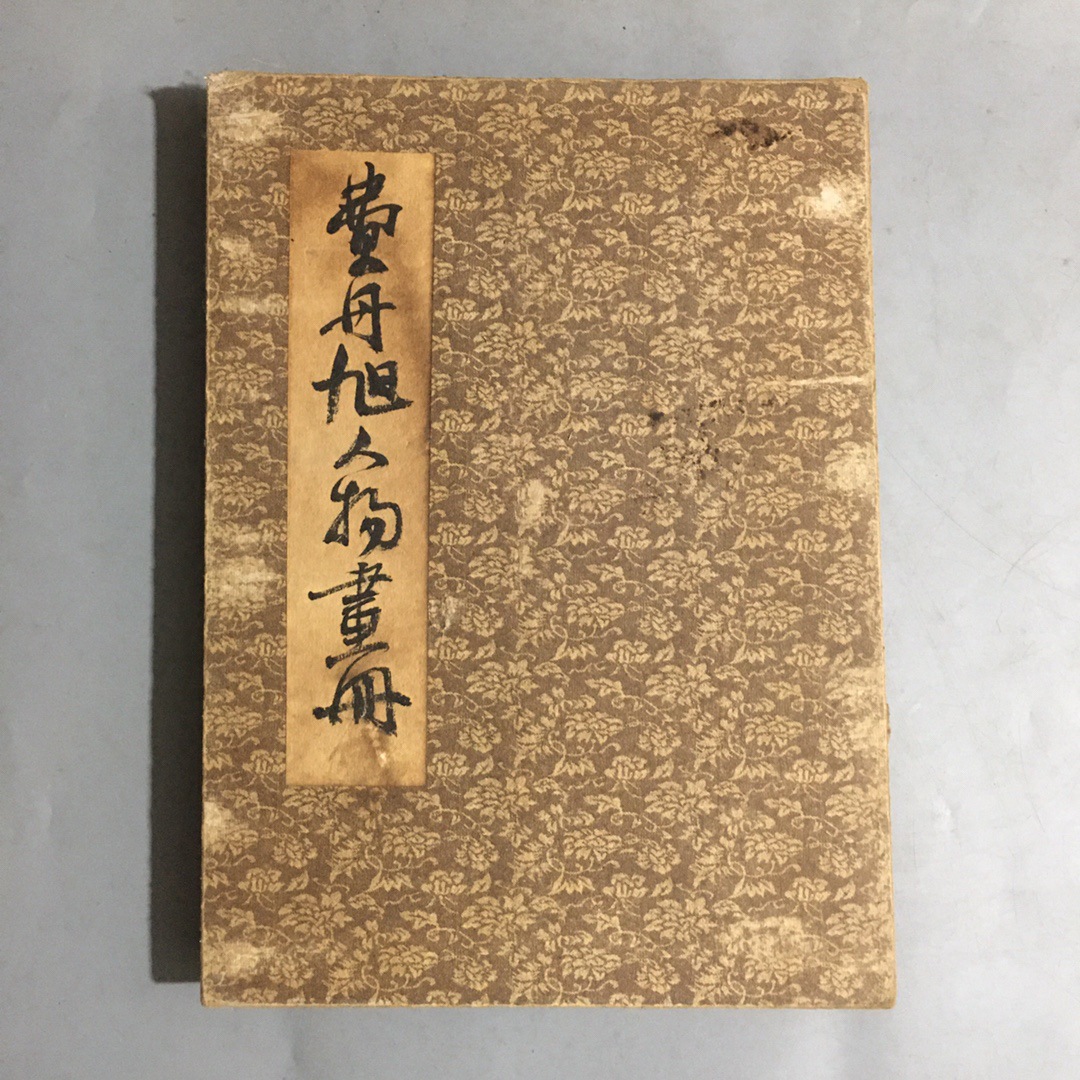 費丹旭人物畫冊